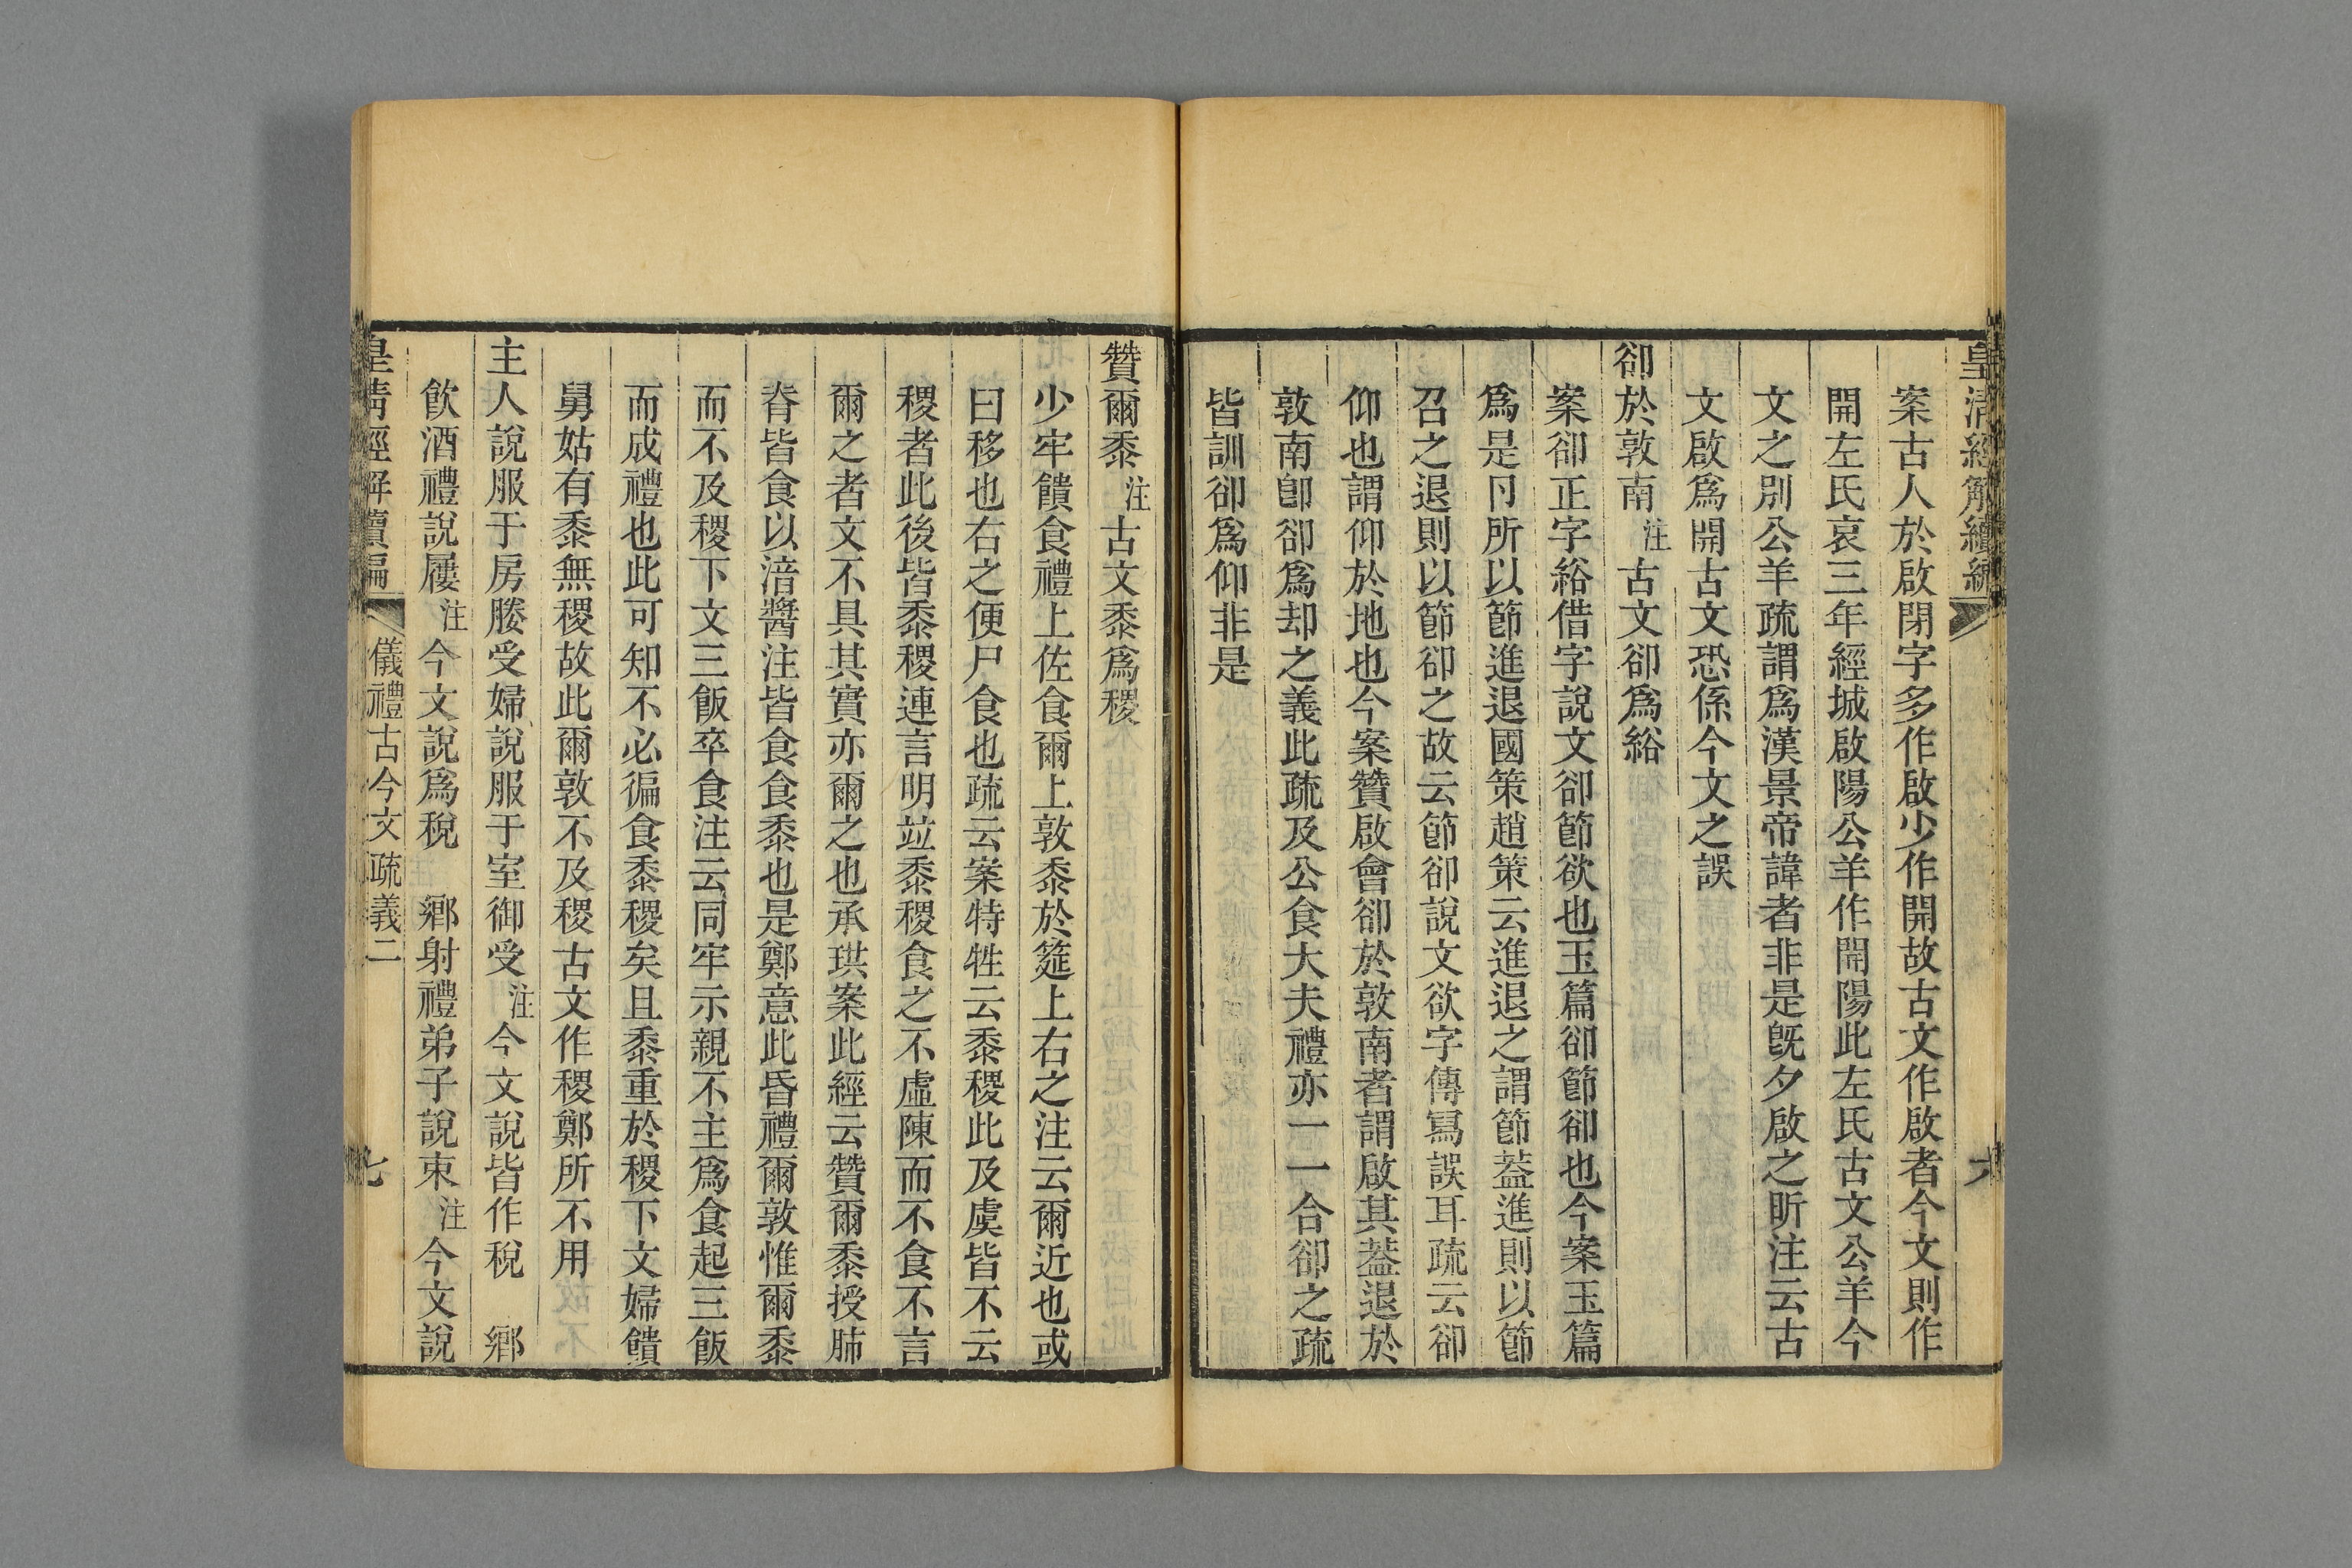 皇清經解續編
六
案古人於啟閉字多作啟少作開故古文作啟者今文則作
開左氏哀三年經城啟陽公羊作開陽此左氏古文公羊今
文之別公羊疏謂爲漢景帝諱者非是旣夕啟之昕注云古
文啟爲開古文恐係今文之誤
卻於敦南注古文卻爲綌
案卻正字綌借字說文卻節欲也玉篇卻節卻也今案玉篇
爲是卪所以節進退國策趙策云進退之謂節葢進則以節
召之退則以節卻之故云節卻說文欲字傳寫誤耳疏云卻
仰也謂仰於地也今案贊啟會卻於敦南者謂啟其葢退於
敦南卽卻爲却之義此疏及公食大夫禮亦一一合卻之疏
皆訓卻爲仰非是
贊爾黍注古文黍爲稷
少牢饋食禮上佐食爾上敦黍於筵上右之注云爾近也或
曰移也右之便尸食也疏云案特牲云黍稷此及虞皆不云
稷者此後皆黍稷連言明竝黍稷食之不虛陳而不食不言
爾之者文不具其實亦爾之也承珙案此經云贊爾黍授肺
脊皆食以湆醬注皆食食黍也是鄭意此昏禮爾敦惟爾黍
而不及稷下文三飯卒食注云同牢示親不主爲食起三飯
而成禮也此可知不必徧食黍稷矣且黍重於稷下文婦饋
舅姑有黍無稷故此爾敦不及稷古文作稷鄭所不用
主人說服于房媵受婦說服于室御受注今文說皆作稅　鄉
飮酒禮說屨注今文說爲稅　鄉射禮弟子說束注今文說
皇淸經解續編
儀禮古今文疏義二
七